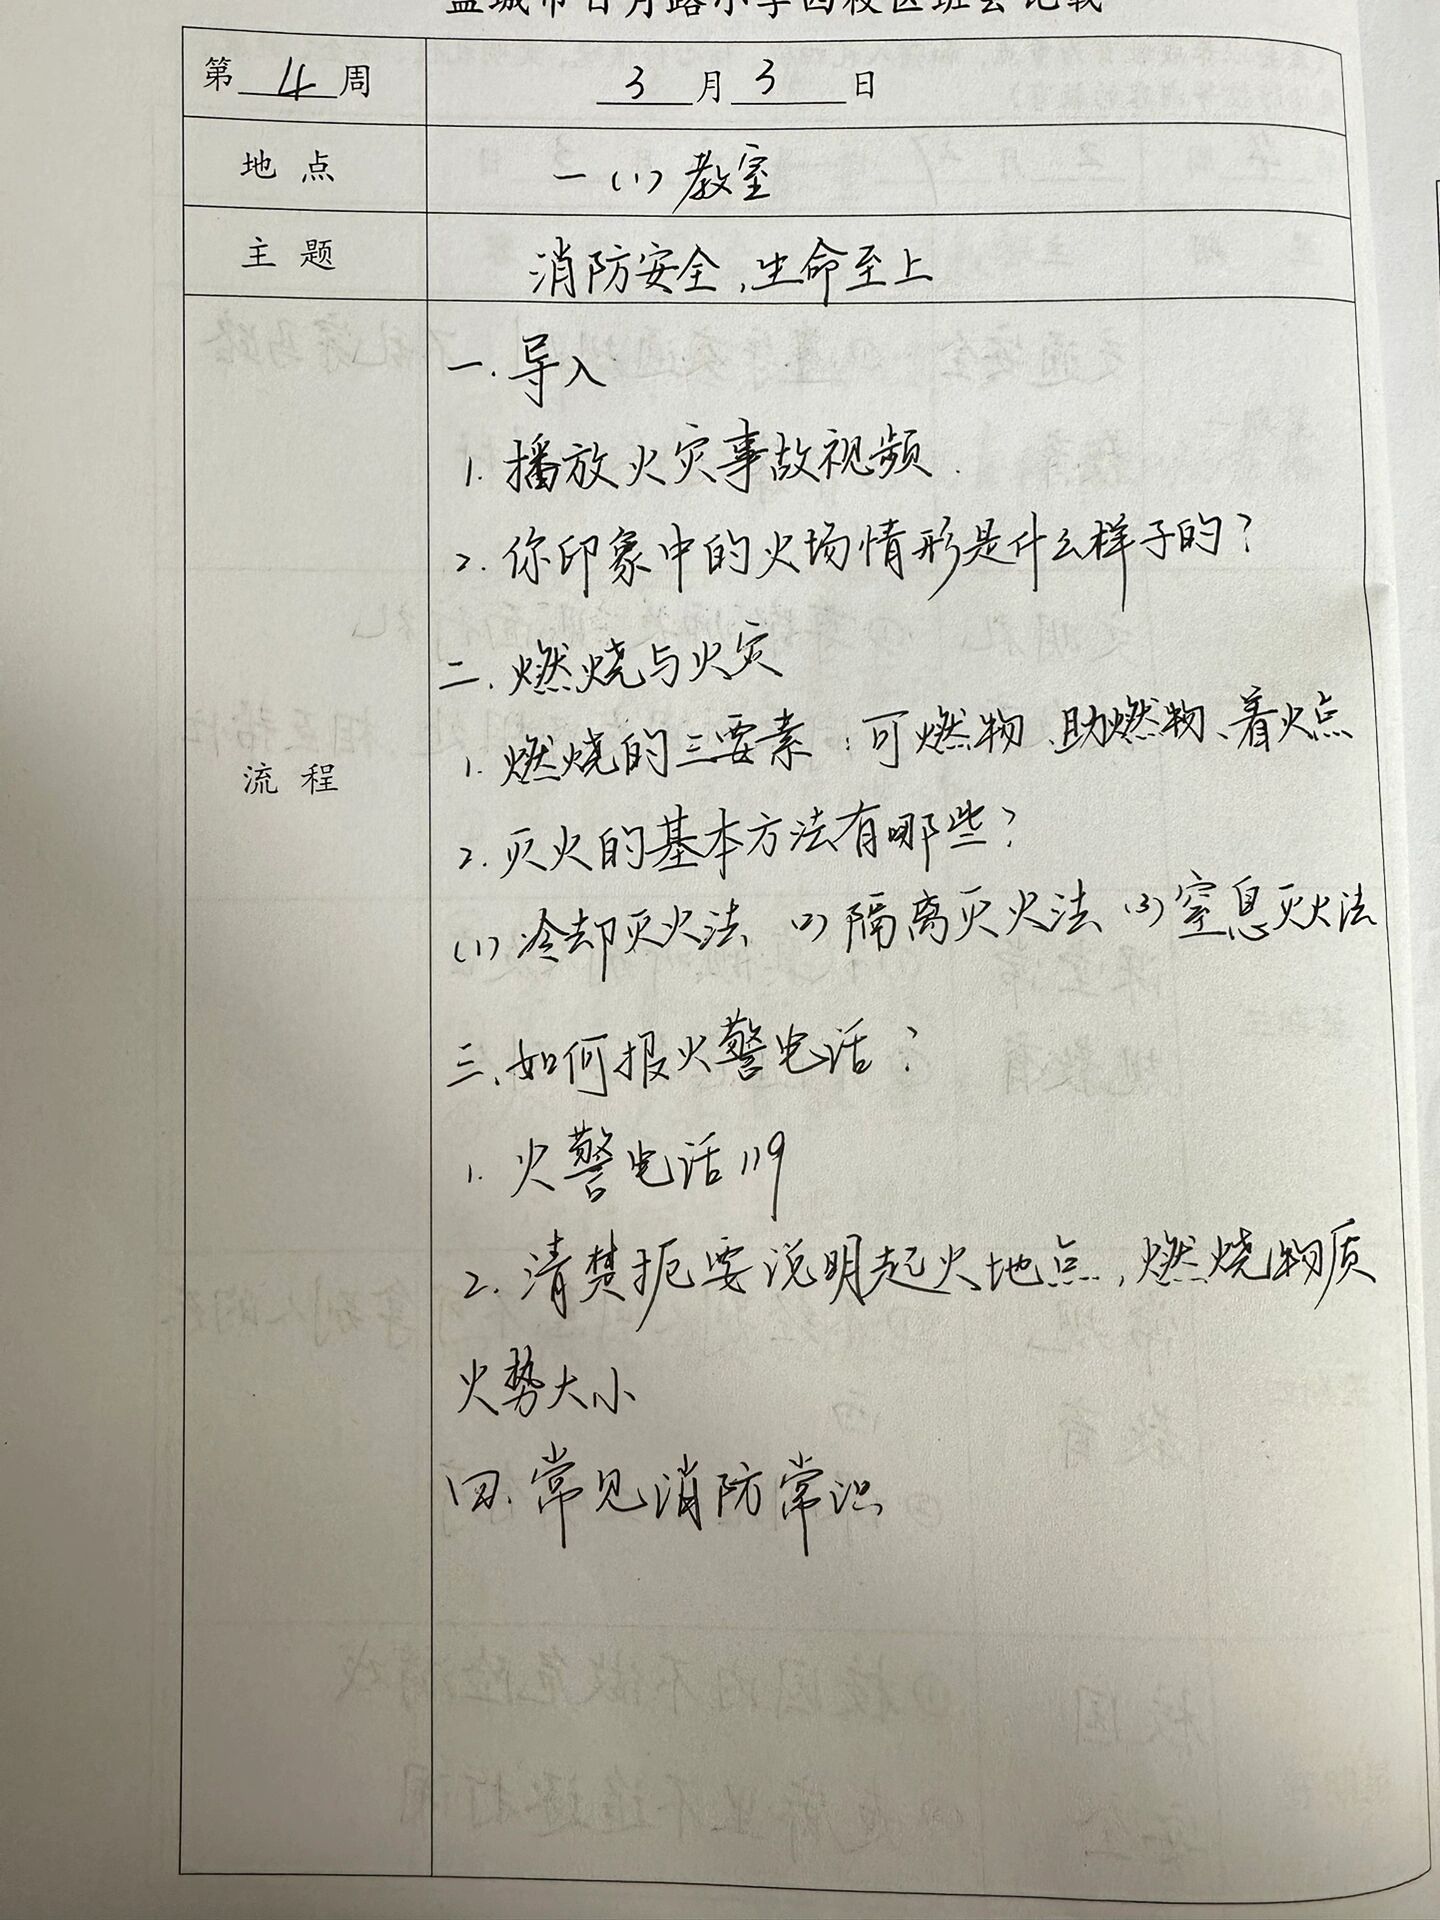 盐城市日月路小学西校区班会记载
第 4 周 3 月 3 日
地 点 一(1)教室
主 题 消防安全,生命至上
一.导入
1.播放火灾事故视频.
2.你印象中的火场情形是什么样子的?
二.燃烧与火灾
1.燃烧的三要素:可燃物、助燃物、着火点
流 程
2.灭火的基本方法有哪些?
(1)冷却灭火法 (2)隔离灭火法 (3)窒息灭火法
三、如何报火警电话?
1.火警电话119
2.清楚扼要说明起火地点,燃烧物质
火势大小
四.常见消防常识